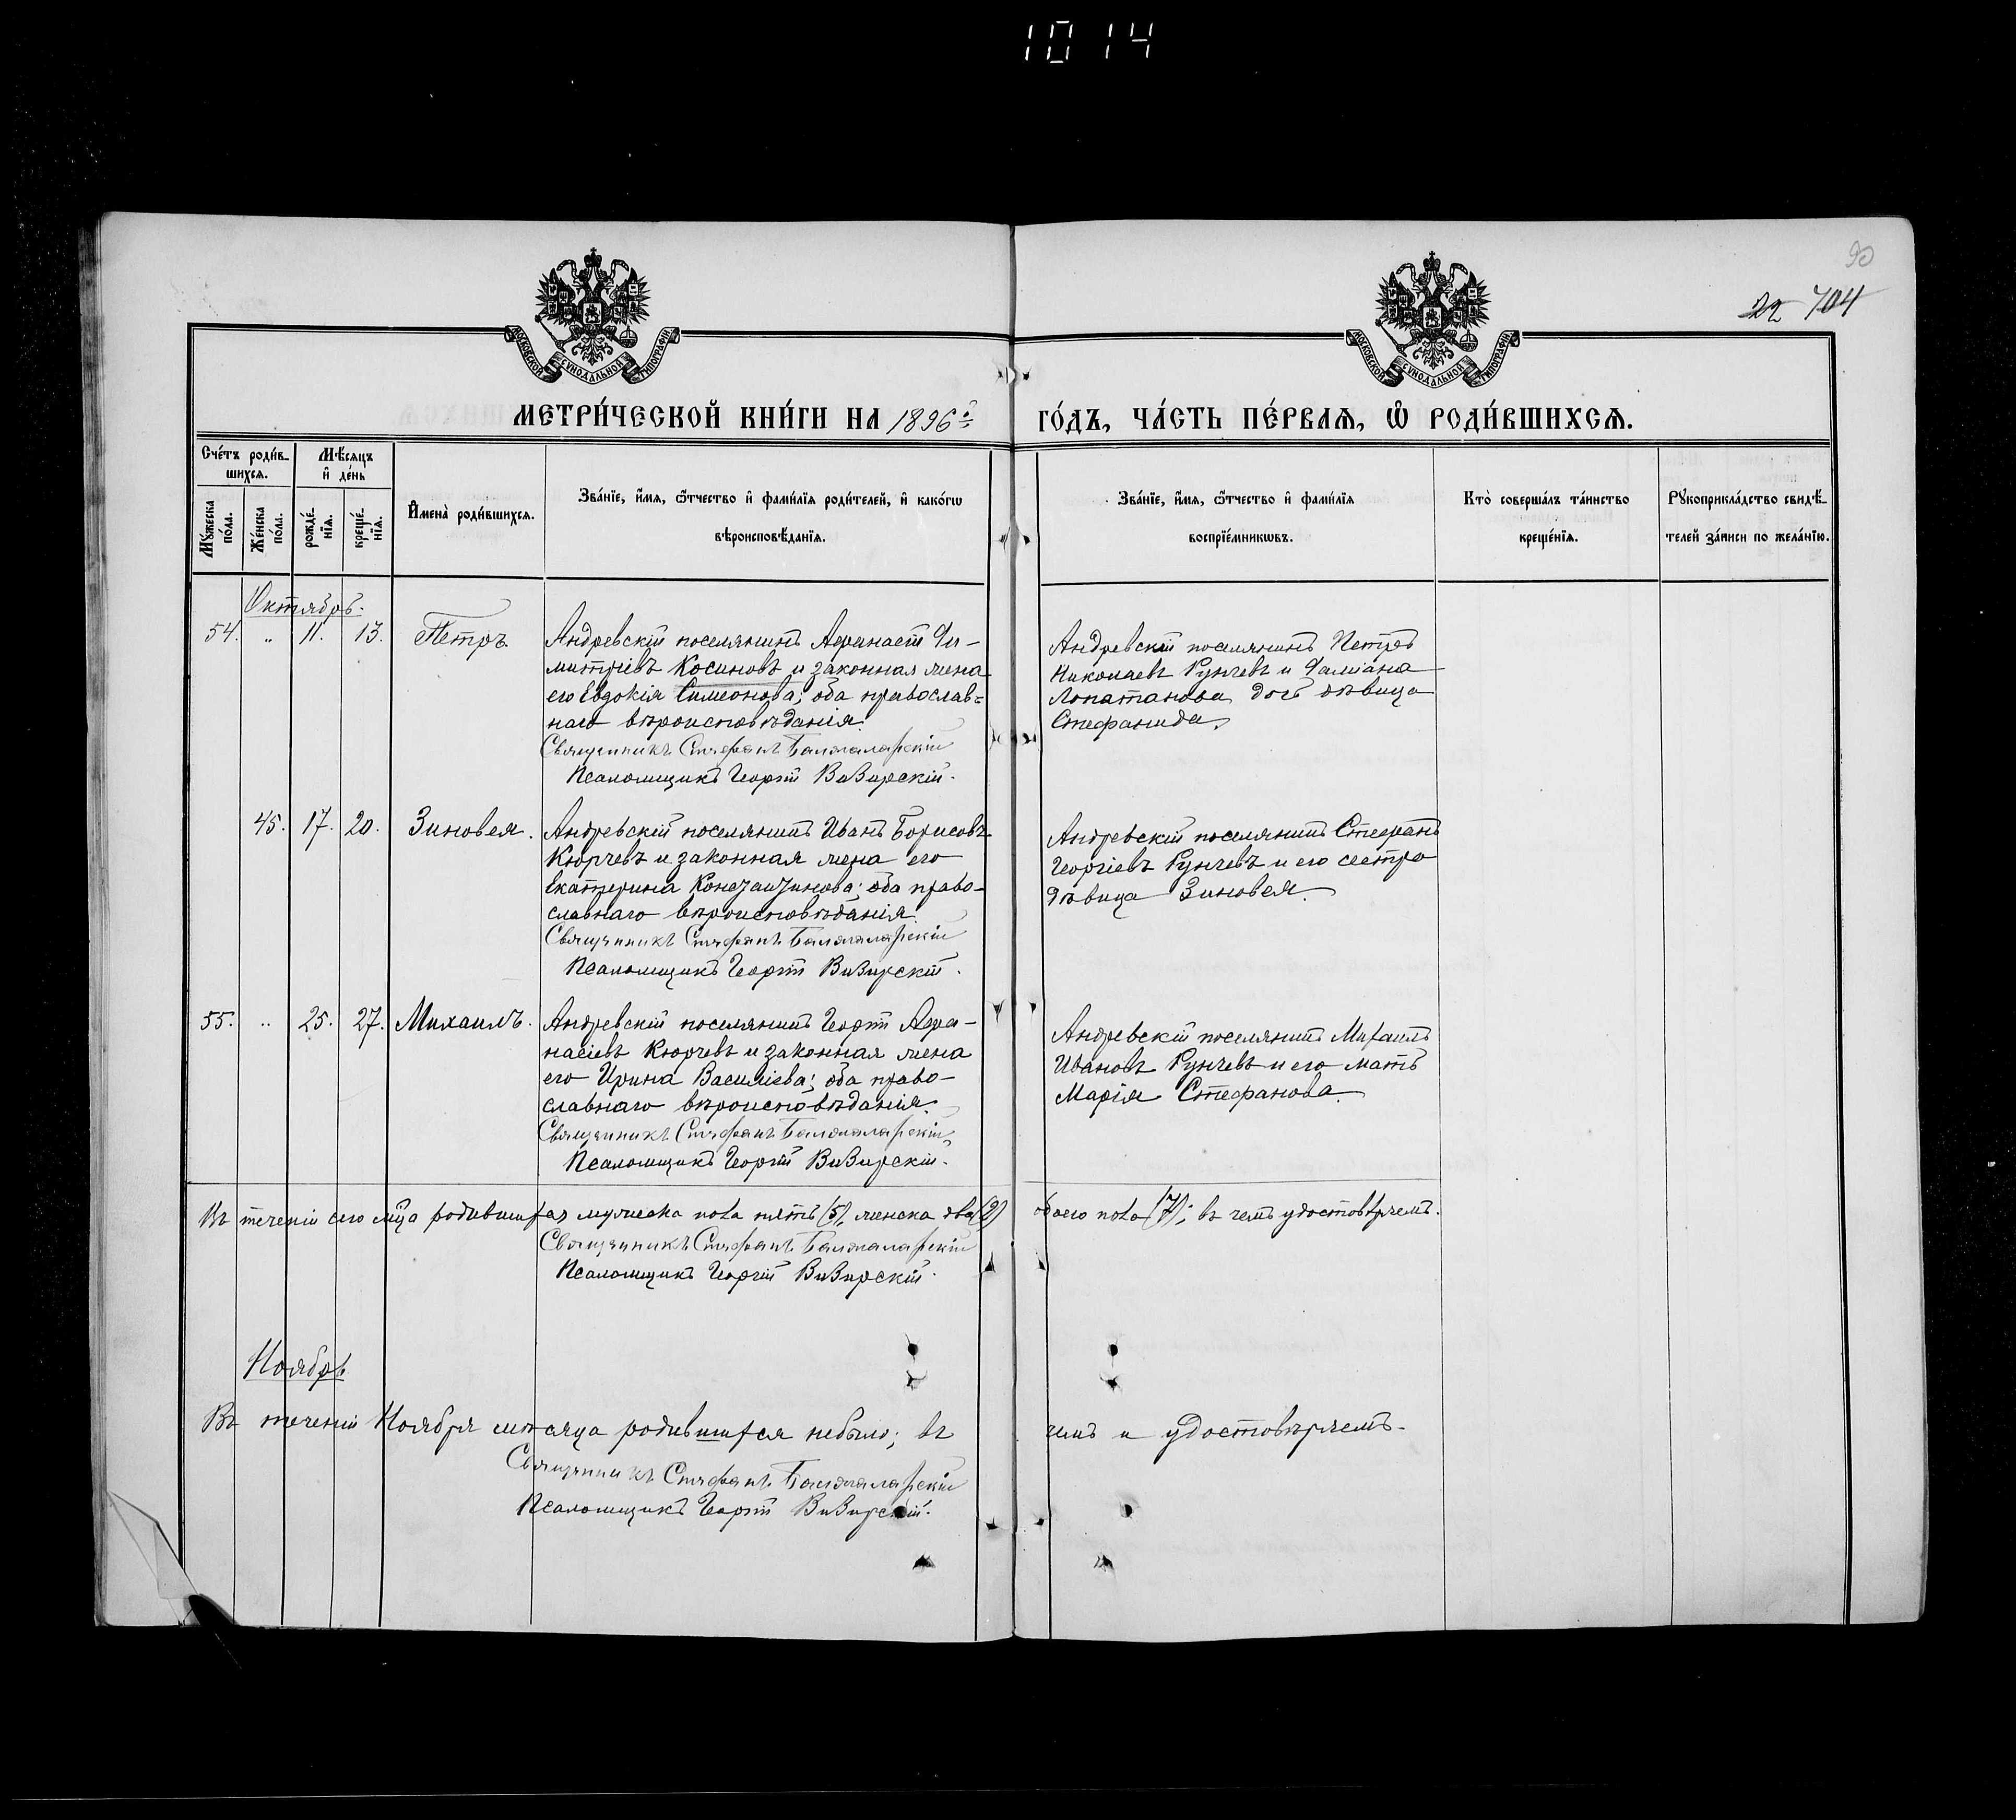 1014
90
22 704
МОСКОВСКОЙ СѴНОДАЛЬНОЙ ТИПОГРАФІИ
МОСКОВСКОЙ СѴНОДАЛЬНОЙ ТИПОГРАФІИ
МЕТРИ́ЧЕСКОЙ КНИ́ГИ НА 1896 й ГО́ДЪ, ЧА́СТЬ ПЕ́РВАѦ, Ѡ҆ РОДИ́ВШИХСѦ.
Сче́тъ роди́вшихся.
Мѣ́сяцъ и҆ де́нь
Му́жеска по́ла.
Же́нска по́ла.
рожде́нїя.
креще́нїя.
И҆мена̀ роди́вшихся.
Зва́нїе, и҆́мя, ѻ҆́тчество и҆ фами́лїя роди́телей, и҆ како́гѡ
вѣроисповѣ́данїя.
Зва́нїе, и҆́мя, ѻ҆́тчество и҆ фами́лїя
воспрїе́мникѡвъ.
Кто̀ соверша́лъ та́инство
креще́нїя.
Рꙋкоприкла́дство свидѣ́-
телей за́писи по жела́нїю.
Октябрь.
54. „ 11. 13. Петръ.
Андревскій поселянинъ Афанасій Ди-
митріевъ Косиновъ и законная жена
его Евдокія Симеонова; оба православ-
наго вѣроисповѣданія.
Священникъ Стефанъ Балжаларскій
Псаломщикъ Георгій Визирскій.
Андревскій поселянинъ Петръ
Николаевъ Рунчевъ и Даміана
Лопатанова дочь дѣвица
Стефанида.
45. 17. 20. Зиновея.
Андревскій поселянинъ Иванъ Борисовъ
Кюрчевъ и законная жена его
Екатерина; оба право-
славнаго вѣроисповѣданія.
Священникъ Стефанъ Балжаларскій
Псаломщикъ Георгій Визирскій.
Андревскій поселянинъ Стефанъ
Георгіевъ Рунчевъ и его сестра
дѣвица Зиновея.
55. „ 25. 27. Михаилъ.
Андревскій поселянинъ Георгій Афа-
насіевъ Кюрчевъ и законная жена
его Ирина Василіева; оба право-
славнаго вѣроисповѣданія.
Священникъ Стефанъ Балжаларскій
Псаломщикъ Георгій Визирскій.
Андревскій поселянинъ Михаилъ
Ивановъ Рунчевъ и его мать
Марія Стефанова.
Въ теченіи сего мц̃а родившихся мужеска пола пять (5), женска два (2) обоего пола (7); въ чемъ удостовѣряемъ.
Священникъ Стефанъ Балжаларскій
Псаломщикъ Георгій Визирскій.
Ноябрь
Въ теченіи Ноября мѣсяца родившихся небыло; въ чемъ и удостовѣряемъ.
Священникъ Стефанъ Балжаларскій
Псаломщикъ Георгій Визирскій.